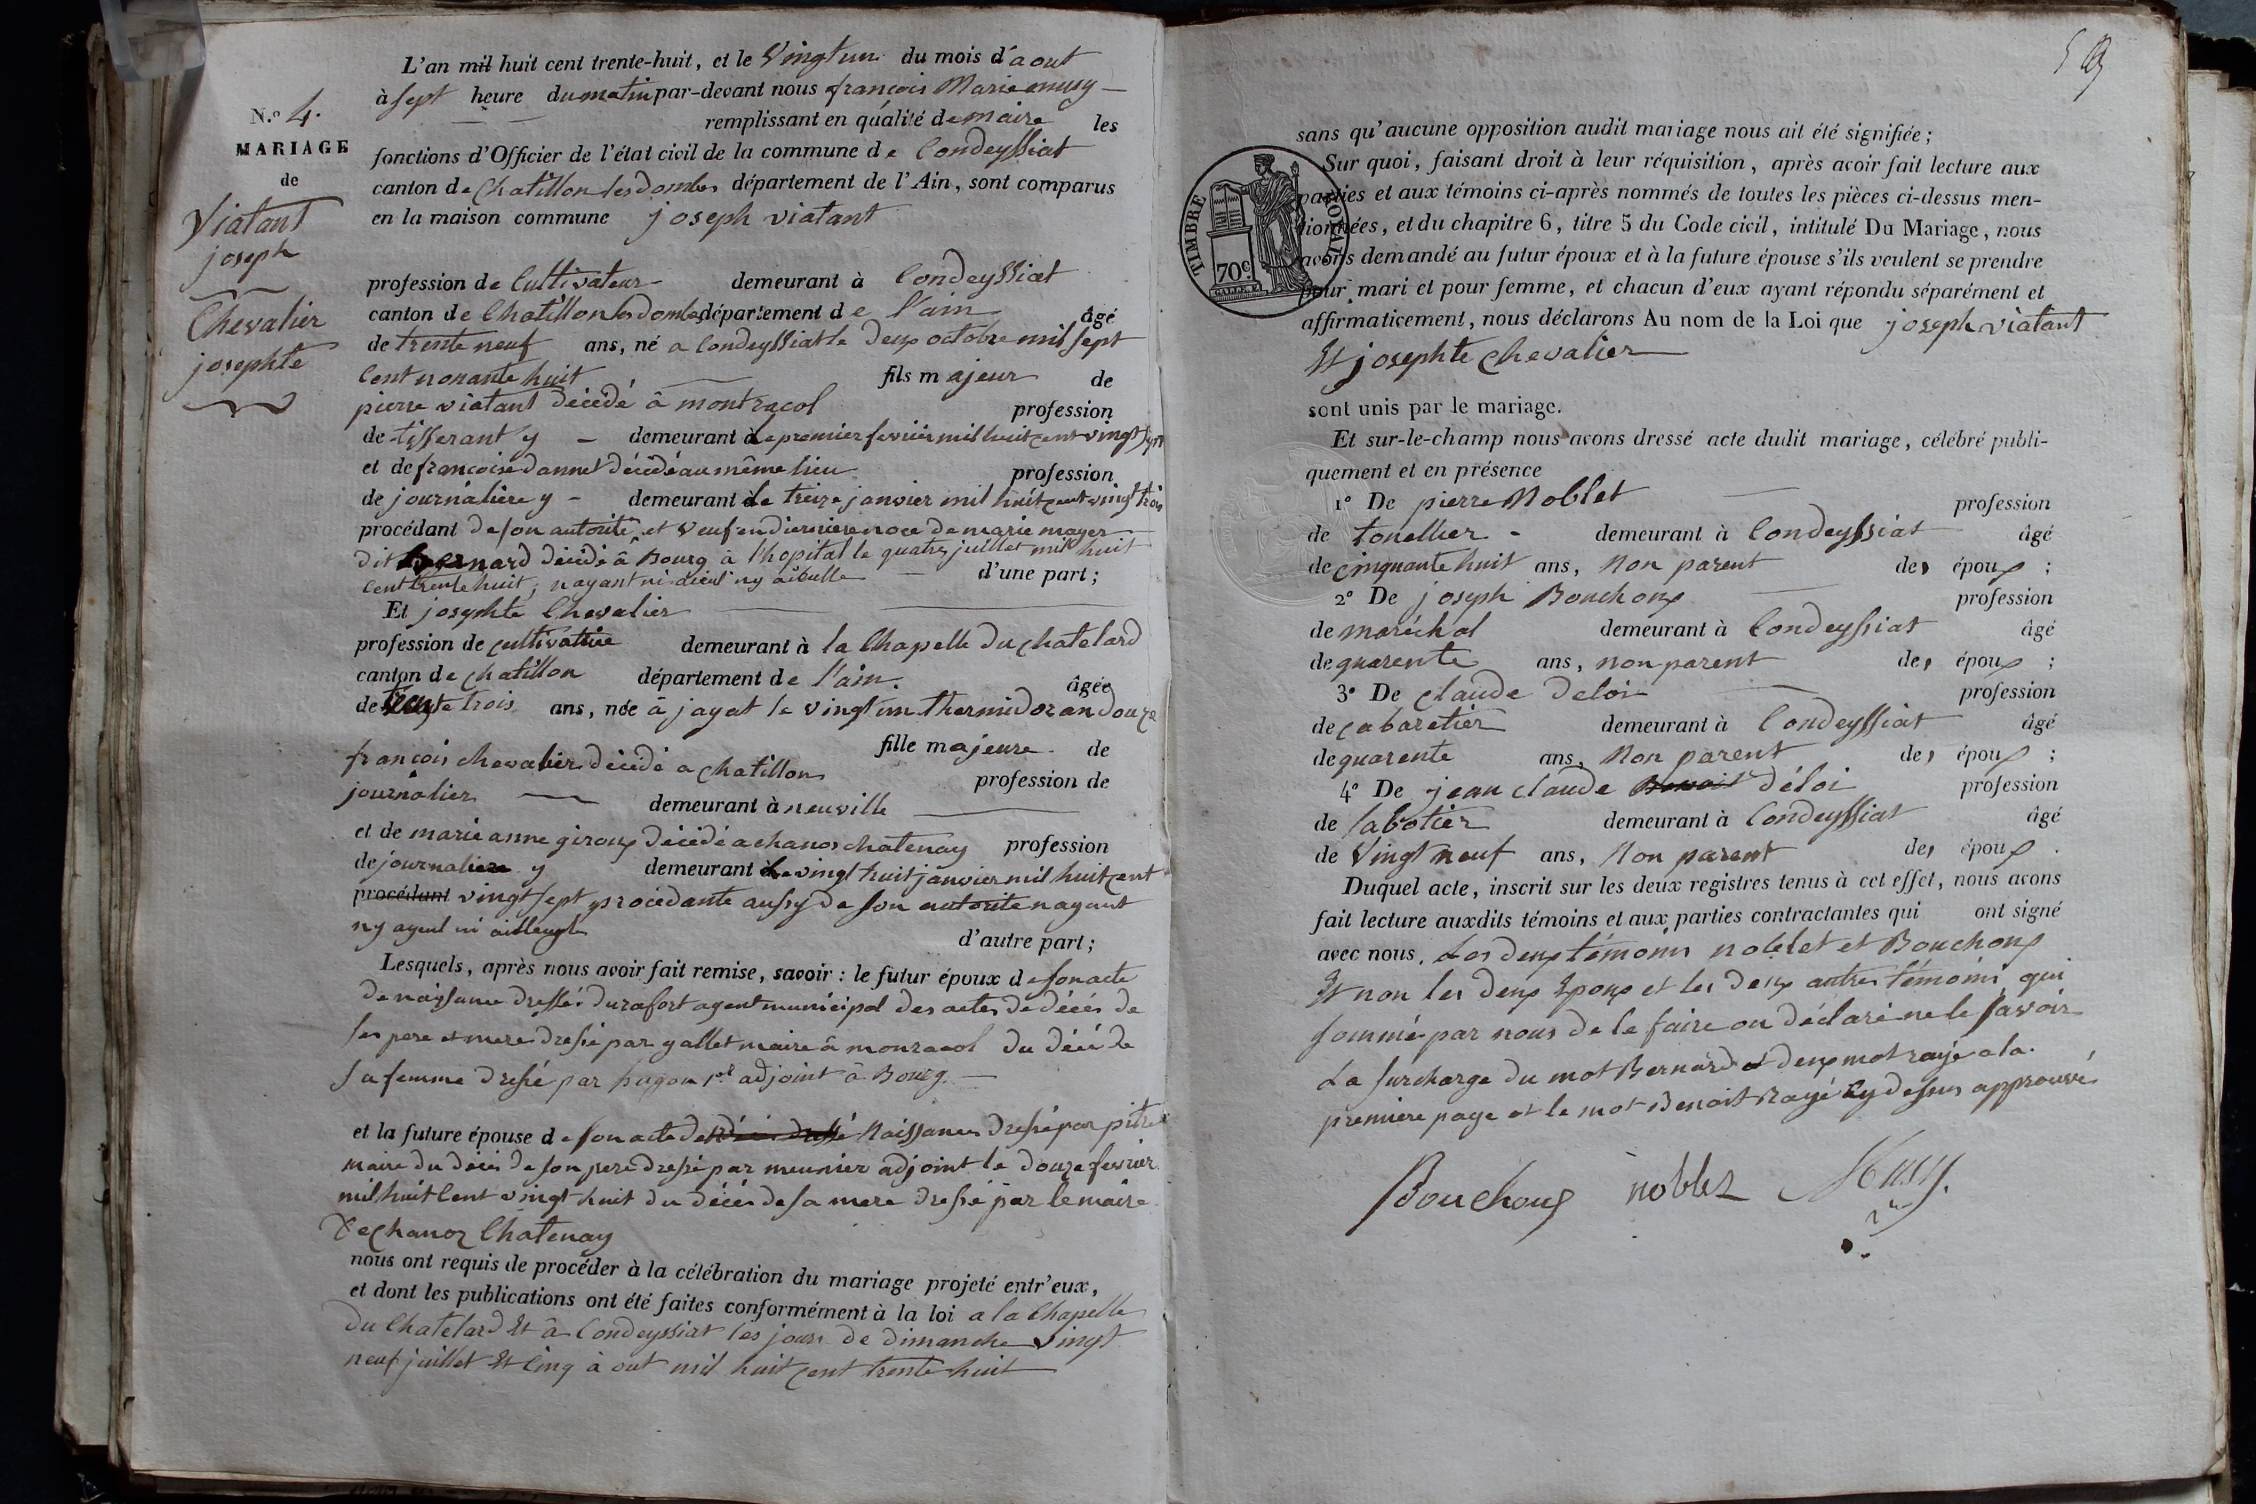 L'an mil huit cent trente-huit, et le Vingt un du mois d'aout
à sept heure du matin par-devant nous françois Marie musy
remplissant en qualité de maire les
N.o 4.
MARIAGE
de
Viatant
joseph
Chevalier
josephte
fonctions d'Officier de l'état civil de la commune de Condeyssiat
canton de Chatillon les dombes département de l'Ain, sont comparus
en la maison commune joseph viatant
profession de Cultivateur demeurant à Condeyssiat
canton de Chatillon les dombes département de l'ain âgé
de trente neuf ans, né a Condeyssiat le deux octobre mil sept
Cent nonante huit fils majeur de
pierre viatant décédé â montracol profession
de tisserant y demeurant à le premier fevrier mil huit cent vingt sept
et de francoise dannet décédé au même lieu profession
de journaliere y demeurant le treize janvier mil huit cent vingt trois
procédant de son autorité et Veuf en dierniere noce de marie mayer
dit Bernard décédé â Bourg à l'hopital le quatre juillet mil huit
Cent trente huit, nayant ni aieul ny aieulle d'une part;
Et josephte Chevalier
profession de cultivatrice demeurant à la Chapelle du chatelard
canton de chatillon département de l'ain. âgée
de trente trois ans, née à jayat le vingt un thermidor an douze
fille majeure de
françois chevalier décédé a chatillon profession de
journalier demeurant à neuville
et de marie anne giroux décédé a chanos chatenay profession
de journaliere y demeurant le vingt huit janvier mil huit cent
procédant vingt sept procédante aussy de son autorite nayant
ny ayeul ni d'autre part;
Lesquels, après nous avoir fait remise, savoir: le futur époux de son acte
de naissance dressé durafort agent municipal des actes de décés de
ses pere et mere dressé par gallet maire â monracol du décé de
sa femme dressé par hugon 1er adjoint â Bourg.
et la future épouse de son acte de décés dressé Naissance dressé par pitre
maire du décés de son pere dressé par meunier adjoint le douze fevrier
mil huit Cent vingt huit du décés de sa mere dressé par le maire
De chanoz Chatenay
nous ont requis de procéder à la célébration du mariage projeté entr'eux,
et dont les publications ont été faites conformément à la loi a la Chapelle
du Chatelard Et â Condeyssiat les jours de dimanche vingt
neuf juillet Et Cinq à out mil huit cent trente huit
59
sans qu'aucune opposition audit mariage nous ait été signifiée;
Sur quoi, faisant droit à leur réquisition, après avoir fait lecture aux
parties et aux témoins ci-après nommés de toutes les pièces ci-dessus men-
tionnées, et du chapitre 6, titre 5 du Code civil, intitulé Du Mariage, nous
avons demandé au futur époux et à la future épouse s'ils veulent se prendre
pour mari et pour femme, et chacun d'eux ayant répondu séparément et
affirmativement, nous déclarons Au nom de la Loi que joseph viatant
TIMBRE ROYAL
70c.
Et josephte chevalier
sont unis par le mariage.
Et sur-le-champ nous avons dressé acte dudit mariage, célébré publi-
quement et en présence
1o De pierre Noblet profession
de tonellier demeurant à Condeyssiat âgé
de cinquante huit ans, Non parent des époux;
2o De joseph Bouchoux profession
de maréchal demeurant à Condeyssiat âgé
de quarente ans, non parent des époux;
3o De claude deloi profession
de cabaretier demeurant à Condeyssiat âgé
de quarente ans, Non parent des époux;
4o De jean claude Benoit déloi profession
de sabotier demeurant à Condeyssiat âgé
de Vingt neuf ans, Non parent des époux.
Duquel acte, inscrit sur les deux registres tenus à cet effet, nous avons
fait lecture auxdits témoins et aux parties contractantes qui ont signé
avec nous. Les deux témoins noblet et Bouchoux
Et non les deux Epoux et les deux autres témoins, qui
sommé par nous de le faire on déclaré ne le savoir
La surcharge du mot Bernard et deux mot rayé a la
premiere page et le mot Benoit Rayé Cy dessus approuvé
Bouchoux noblet Musy.